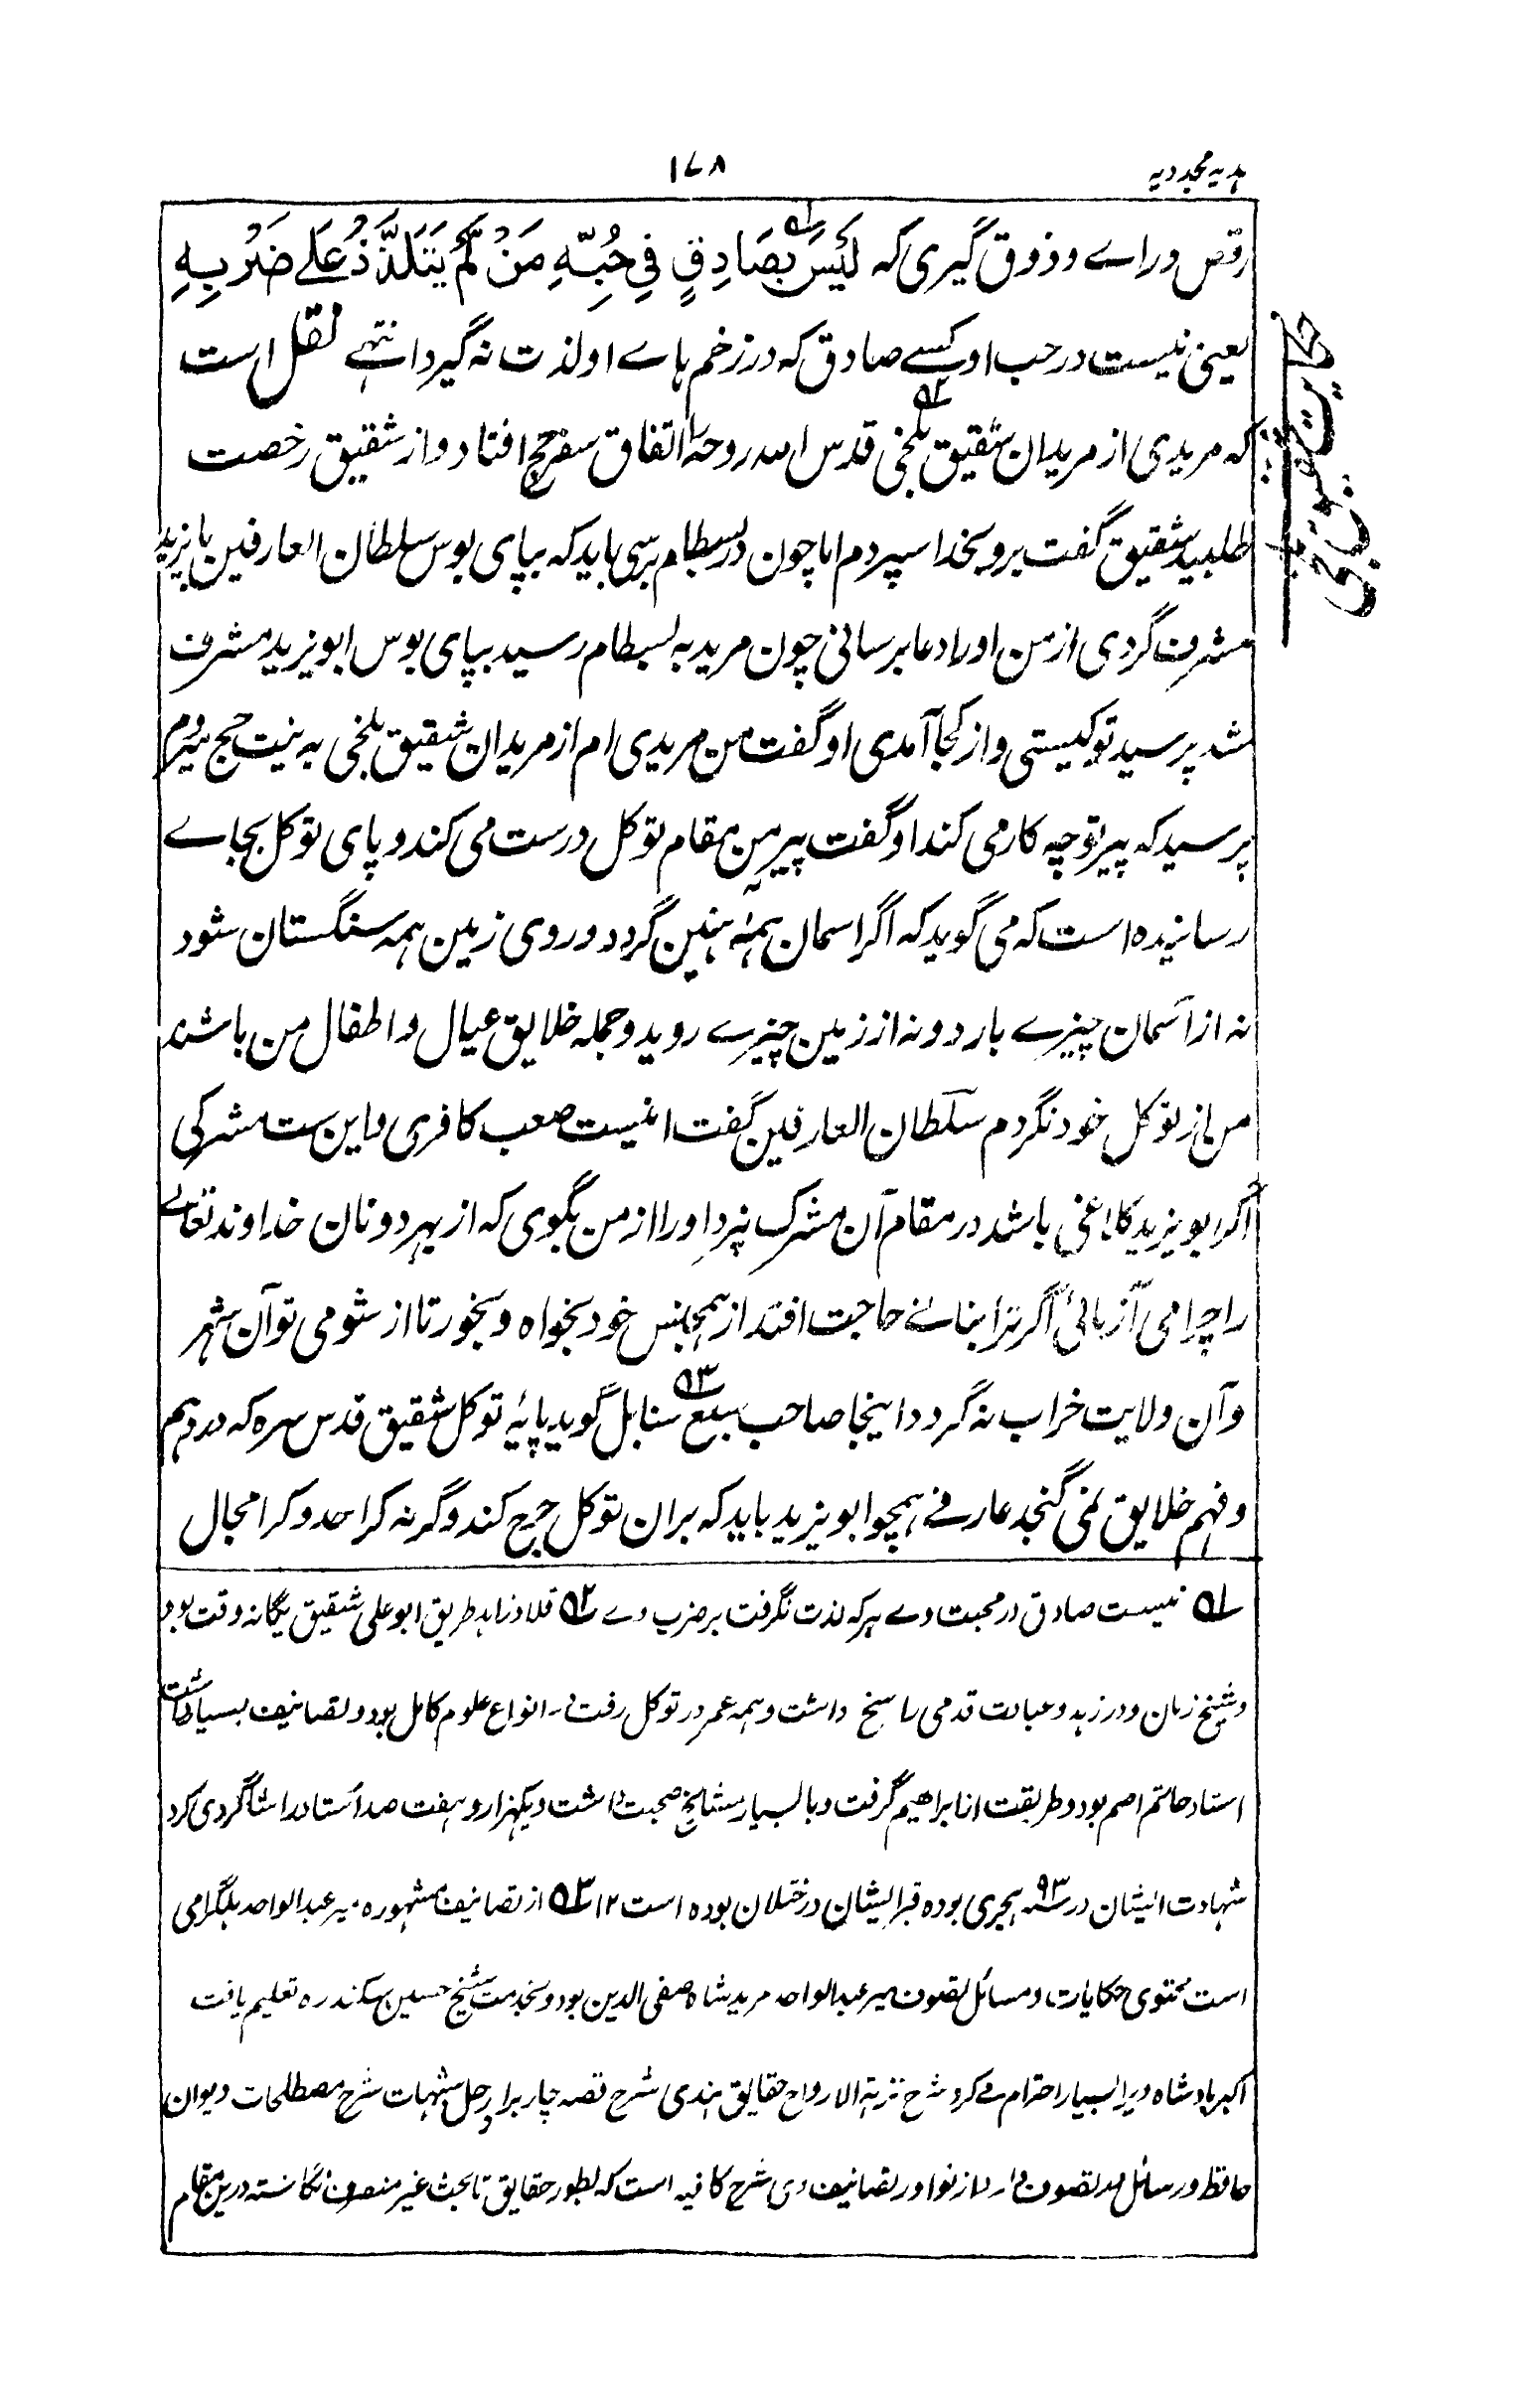 ہدیہ مجددیہ
۱۷۸
رقص و راے و ذوق گیری کہ لَیْسَ بِصَادِقٍ فِیْ حُبِّہٖ مَنْ لَّمْ یَتَلَذَّذْ عَلٰے ضَرْبِہٖ
یعنی نیست در حب او کسے صادق کہ در زخم ہاے او لذت نہ گیرد انتہے نقل است
کہ مریدی از مریدان شقیق بلخی قدس اللہ روحہ را اتفاق سفر حج افتاد و از شقیق رخصت
طلبید شقیق گفت برو بخدا سپردم اما چون در بسطام برسی باید کہ بپای بوس سلطان العارفین بایزید
مشرف گردی از من او را دعا برسانی چون مرید بہ بسطام رسید بپای بوس ابو یزید مشرف
شد پرسید تو کیستی و از کجا آمدی او گفت من مریدی ام از مریدان شقیق بلخی بہ نیت حج میروم
پرسید کہ پیر تو چہ کار می کند او گفت پیر من بمقام توکل درست می کند و پای توکل بجاے
رسانیدہ است کہ می گوید کہ اگر اسمان ہمہ آہنین گردد و روی زمین ہمہ سنگستان شود
نہ از آسمان چیزے بارد و نہ از زمین چیزے روید و جملہ خلایق عیال و اطفال من باشند
من از توکل خود نگردم سلطان العارفین گفت اینست صعب کافری و این ست مشرکی
اگر ابو یزید کلاغی باشد در مقام آن مشرک نپرد او را از من بگوی کہ از بہر دو نان خداوند تعالے
را چرا می آزمائی اگر ترا بنانے حاجت افتد از ہمجنس خود بخواہ و بخور تا از شومی تو آن شہر
و آن ولایت خراب نہ گردد اینجا صاحب سبع سنابل گوید پایۂ توکل شقیق قدس سرہ کہ در وہم
و فہم خلایق نمی گنجد عارفے ہمچو ابو یزید باید کہ بران توکل جرح کند و گرنہ کرا حد و کرا مجال
حکایت شقیق بلخی
۵۱ نیست صادق در محبت وے ہر کہ لذت نگرفت بر ضرب وے ۵۲ قلاوز اہد طریق ابو علی شقیق یگانہ وقت بود
و شیخ زمان و در زہد و عبادت قدمی راسخ داشت و ہمہ عمر در توکل رفت در انواع علوم کامل بود و تصانیف بسیار داشت
استاد حاتم اصم بود و طریقت از ابراھیم گرفت و با بسیار مشایخ صحبت داشت و یکہزار و ہفت صد استاد را شاگردی کرد
شہادت ایشان در ۹۳ ہجری بودہ قبر ایشان در ختلان بودہ است ۱۲ ۵۳ از تصانیف مشہورہ میر عبد الواحد بلگرامی
است محتوی حکایات و مسائل تصوف میر عبد الواحد مرید شاہ صفی الدین بود و بخدمت شیخ حسین سکندرہ تعلیم یافت
اکبر بادشاہ ویرا بسیار احترام مے کرد شرح نزہۃ الارواح حقایق ہندی شرح قصہ چار برادر حل شبہات شرح مصطلحات دیوان
حافظ و رسائل در تصوف دارد از نوادر تصانیف وی شرح کافیہ است کہ بطور حقایق تا بحث غیر منصرف نگاشتہ درین مقام